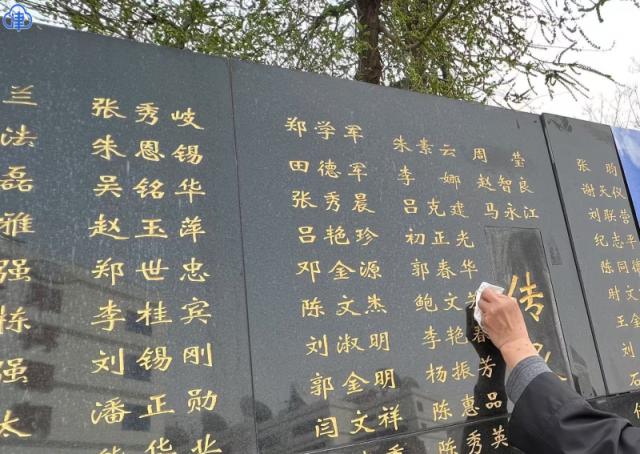 津
兰 张秀岐
法 朱恩锡
磊 吴铭华
雅 赵玉萍
强 郑世忠
栋 李桂宾
强 刘锡刚
太 潘正勋
郑学军 朱素云 周莹
田德军 李娜 赵智良
张秀晨 吕克建 马永江
吕艳珍 初正光
邓金源 郭春华
陈文杰 鲍文
刘淑明 李艳春
郭金明 杨振芳
闫文祥 陈惠品
陈秀英
传
张昀
谢天仪
刘联营
纪志平
陈同
时文
王金
刘
石